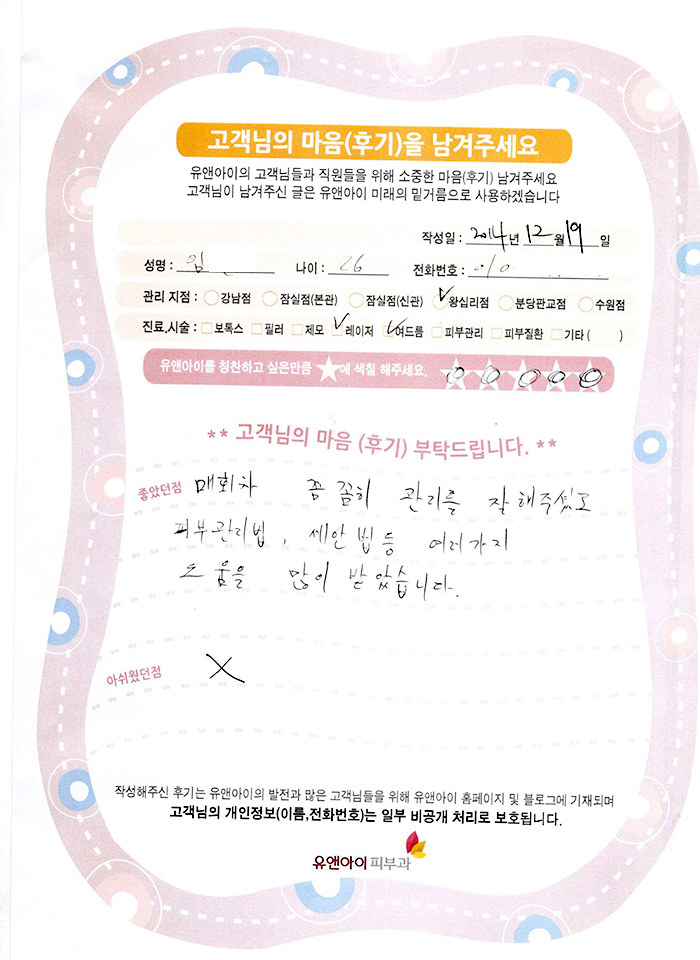 고객님의 마음(후기)을 남겨주세요
유앤아이의 고객님들과 직원들을 위해 소중한 마음(후기) 남겨주세요
고객님이 남겨주신 글은 유앤아이 미래의 밑거름으로 사용하겠습니다
작성일 : 2014년 12월 19일
성명 : 임 나이 : 26 전화번호 : 010
관리 지점 : 강남점 잠실점(본관) 잠실점(신관) 왕십리점 분당판교점 수원점
진료,시술 : 보톡스 필러 제모 레이저 여드름 피부관리 피부질환 기타 ( )
유앤아이를 칭찬하고 싶은만큼 ★에 색칠 해주세요.
** 고객님의 마음 (후기) 부탁드립니다. **
좋았던점 매회차 꼼꼼히 관리를 잘해주셨고
피부관리법, 세안법등 여러가지
도움을 많이 받았습니다.
아쉬웠던점 X
작성해주신 후기는 유앤아이의 발전과 많은 고객님들을 위해 유앤아이 홈페이지 및 블로그에 기재되며
고객님의 개인정보(이름,전화번호)는 일부 비공개 처리로 보호됩니다.
유앤아이 피부과